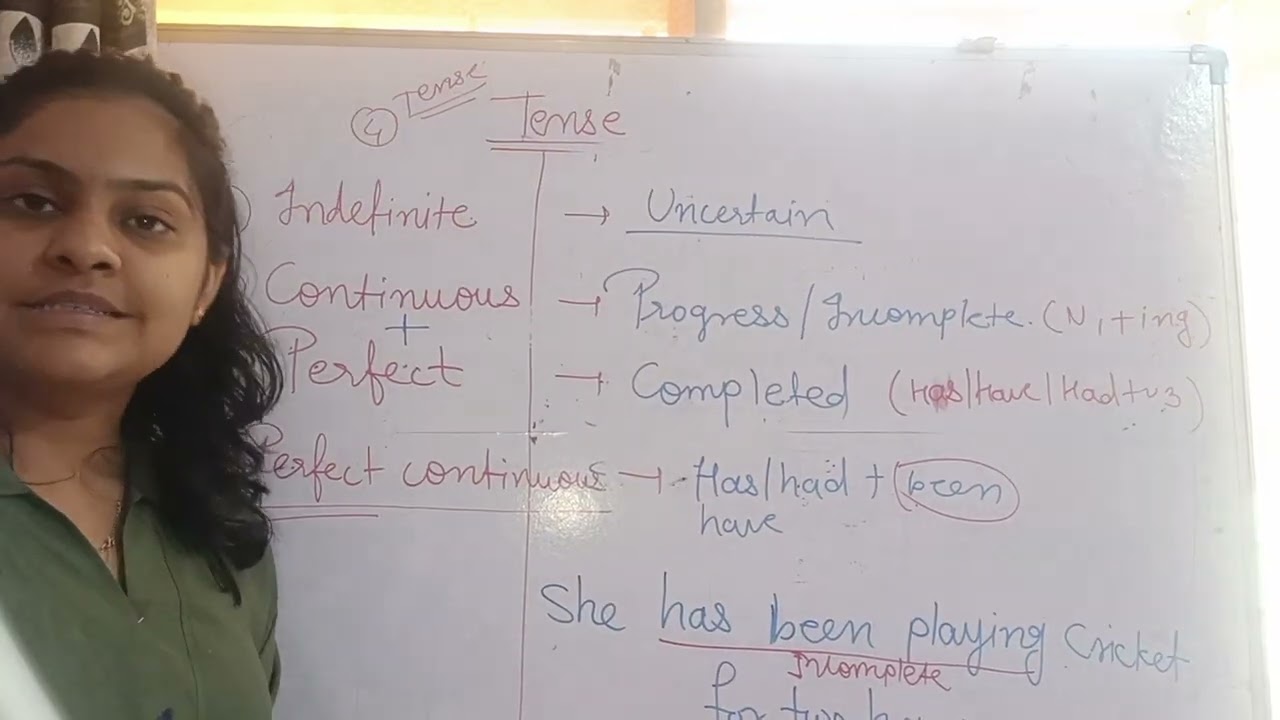 4 Tense
Tense
Indefinite → Uncertain
Continuous → Progress/Incomplete. (V1+ing)
+
Perfect → Completed (Has/Have/Had+v3)
Perfect continuous → Has/had + been
have
She has been playing Cricket
Incomplete
for two